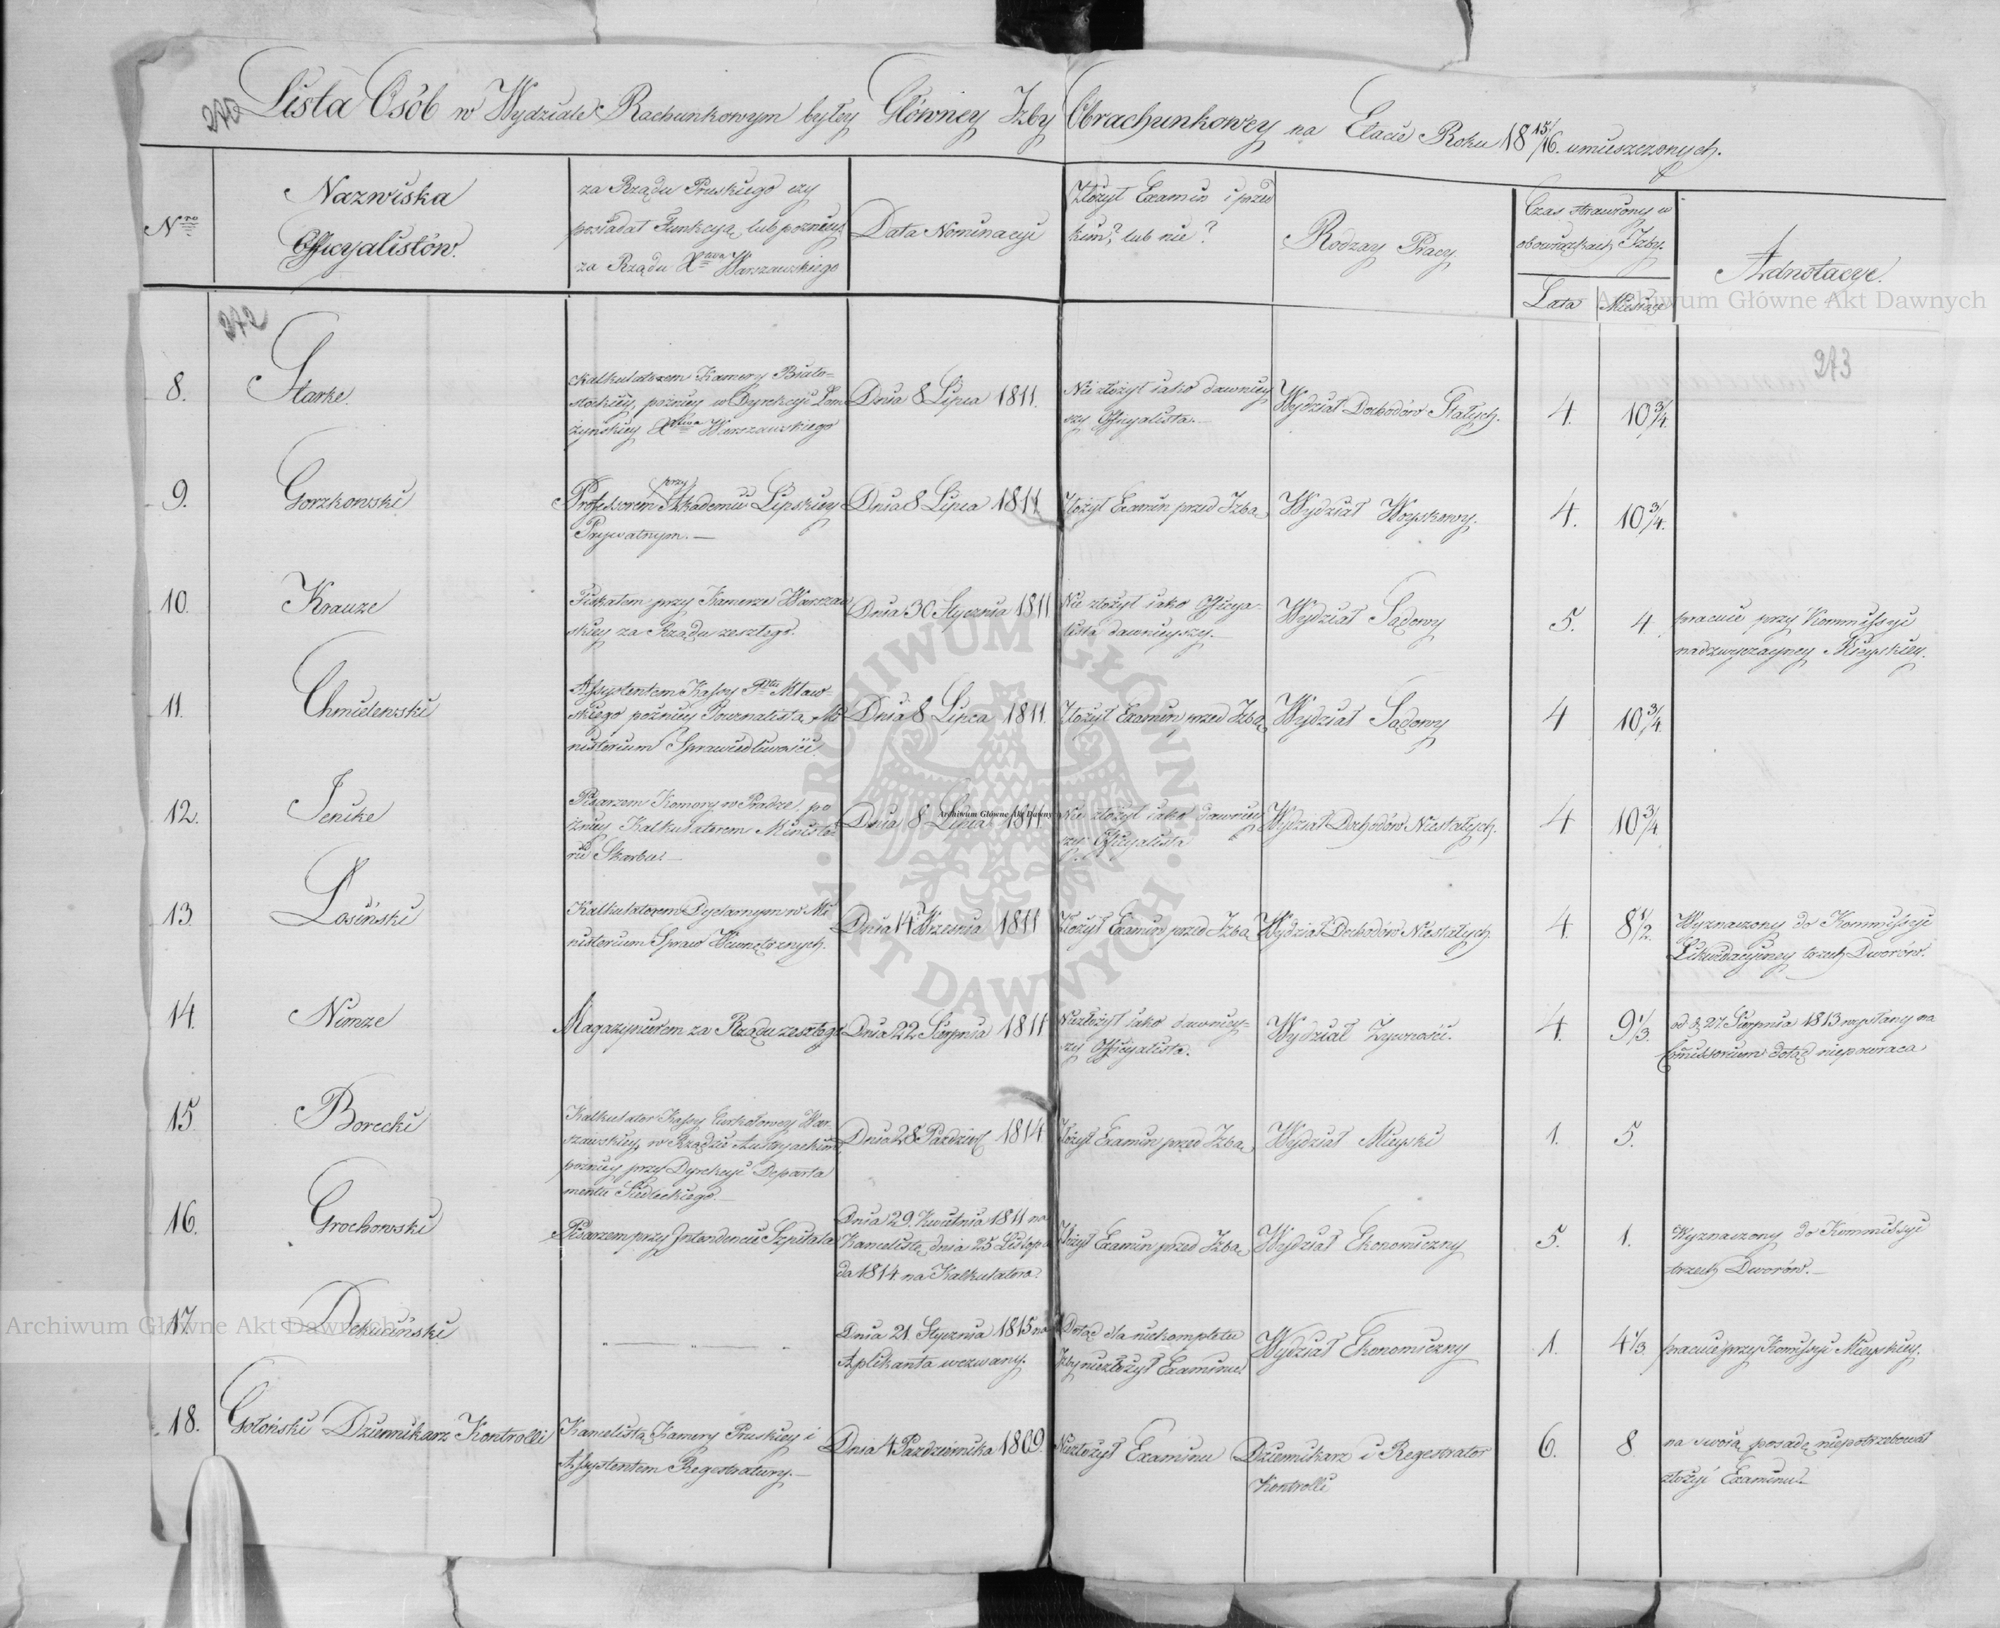 Lista Osób w Wydziale Rachunkowym byłey Główney Izby Obrachunkowey na Etacie Roku 18 15/16. umieszczonych.
272
Nro
Nazwiska
Officyalistów.
za Rządu Pruskiego czy
posiadał Funkcyą, lub poźniey
za Rządu Xtwa Warszawskiego
Data Nominacyi
Złożył Examin i przed
kim? lub nie?
Rodzay Pracy.
Czas strawiony w
obowiązkach Izby
Lata
Miesiące
Adnotacye.
272
273
8.
Starke.
Kalkulatorem Kamery Biało-
stockiey, poźniey w Dyrekcyi Łom
żyńskiey Xtwa Warszawskiego
Dnia 8 Lipca 1811.
Nie złożył iako dawniey
szy Officyalista.
Wydział Dochodów Stałych.
4.
10 3/4.
9.
Gorzkowski
Professorem przy Akademii Lipskiey
Prywatnym.
Dnia 8 Lipca 1811
Złożył Examin przed Izbą
Wydział Woyskowy.
4.
10 3/4.
10.
Krauze
Fiskałem przy Kamerze Warszaw
skiey za Rządu zeszłego.
Dnia 30 Stycznia 1811
Nie złożył iako Officya-
lista dawnieyszy.
Wydział Sądowy
5.
4
pracuie przy Kommissyi
nadzwyczayney Mieyskiey.
11.
Chmielewski
Assystentem Kassy Ptu Mław-
skiego, poźniey Journalistą Mi
nisterium Sprawiedliwości
Dnia 8 Lipca 1811.
Złożył Examin przed Izbą
Wydział Sądowy
4
10 3/4.
12.
Jenike
Pisarzem Komory w Pradze, po
źniey Kalkulatorem Ministe
rii Skarbu.
Dnia 8 Lipca 1811
Nie złożył iako dawniey
szy Officyalista
Wydział Dochodów Niestałych.
4
10 3/4
13.
Łosiński
Kalkulatorem Dyetarnym w Mi
nisterium Spraw Wewnętrznych.
Dnia 14 Września 1811
Złożył Examin przed Izbą
Wydział Dochodów Niestałych.
4.
8 1/2.
Wyznaczony do Kommissyi
Likwidacyiney trzech Dworów.
14.
Nimze
Magazynierem za Rządu zeszłego
Dnia 22 Sierpnia 1811
Niezłożył iako dawniey-
szy Officyalista.
Wydział Żywności.
4.
9 1/3.
od d. 27 Sierpnia 1813 wysłany na
Comissorium dotąd niepowraca
15
Borecki
Kalkulator Kassy Cyrkułowey War
szawskiey, w Rządzie Austryackim
poźniey przy Dyrekcyi Departa
mentu Siedleckiego.
Dnia 28 Paździer 1814
Złożył Examin przed Izbą
Wydział Mieyski
1.
5.
16.
Grochowski
Pisarzem przy Intendencii Szpitala
Dnia 29. Kwietnia 1811 na
Kancelistę, dnia 25 Listopa
da 1814 na Kalkulatora.
Złożył Examin przed Izbą
Wydział Ekonomiczny
5.
1.
Wyznaczony do Kommissyi
trzech Dworów.
17.
Dekuciński
" — " — "
Dnia 21. Stycznia 1815 na
Aplikanta wezwany.
Dotąd dla niekompletu
Izby niezłożył Examinu
Wydział Ekonomiczny
1.
4 1/3
pracuie przy Komissyi Mieyskiey.
18.
Gołoński Dziennikarz Kontrolli
Kancelistą Kamery Pruskiey i
Assystentem Regestratury.
Dnia 4 Października 1809.
Niezłożył Examinu
Dziennikarz i Regestrator
Kontrolli
6.
8
na swoię posadę niepotrzebował
złożyć Examinu.
Archiwum Główne Akt Dawnych
Archiwum Główne Akt Dawnych
Archiwum Główne Akt Dawnych
ARCHIWUM GŁÓWNE AKT DAWNYCH